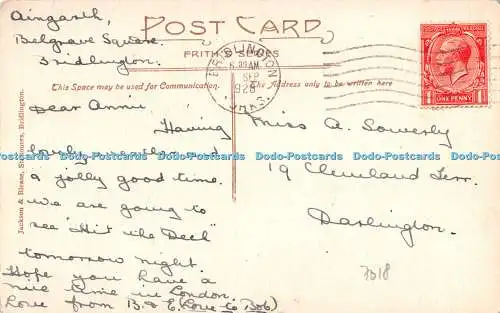 Aingarth,
Belgrave Square,
Bridlington.
POST CARD
FRITH'S SERIES
BRIDLINGTON
SEP
YORKS.
ONE PENNY
This Space may be used for Communication.
The Address only to be written here
Dear Annie
Having
lovely weather and
a jolly good time.
We are going to
see "Hit the Deck"
tomorrow night.
Hope you have a
nice time in London.
Love from B & E (Love to Bob)
Miss A. Sowerby
19 Cleveland Terr.
Darlington.
7318
Jackson & Blease, Seymours, Bridlington.
Dodo-Postcards Dodo-Postcards Dodo-Postcards Dodo-Postcards Dodo-Postcards